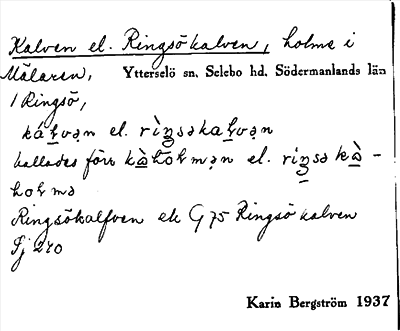 Kalven el. Ringsökalven, holme i
Mälaren, Ytterselö sn, Selebo hd, Södermanlands län
/ Ringsö,
ká̱ɫvən el. rìŋsəka̱ɫvən
kallades förr kà̱hóɫmən el. rìŋsə kà̱-
hoɫmə
Ringsökalfven ek G 75 Ringsö kalven
Sj 240
Karin Bergström 1937